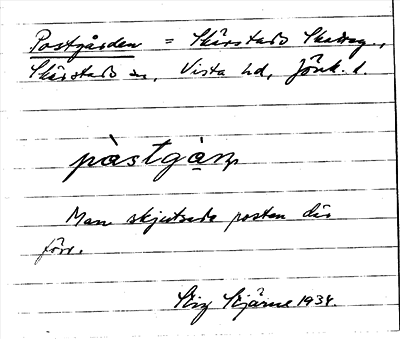 Postgården = Skärstads
Skärstads sn, Vista hd, Jönk. l.
påstgån
Man skjutsade posten där
förr.
Stig Stjärne 1934.